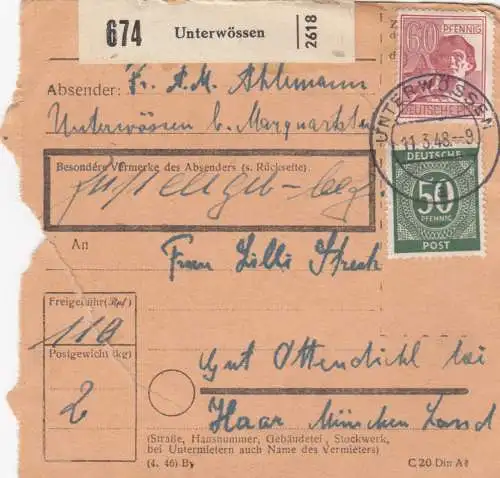 674 Unterwössen 2618
60 PFENNIG
DEUTSCHE POST
Absender: Fr. A. M. Ahlemann
Unterwössen b. Marquartst
UNTERWÖSSEN
11.3.48.--9
Besondere Vermerke des Absenders (s. Rückseite)
Zustellgeb. bez
DEUTSCHE
50
PFENNIG
POST
An Frau Lilli Streck
Freigebühr (Rpf)
110
Postgewicht (kg)
2
Gut Ottendichl bei
Haar München Land
(Straße, Hausnummer, Gebäudeteil, Stockwerk,
bei Untermietern auch Name des Vermieters)
(4. 46) By
C 20 Din A6